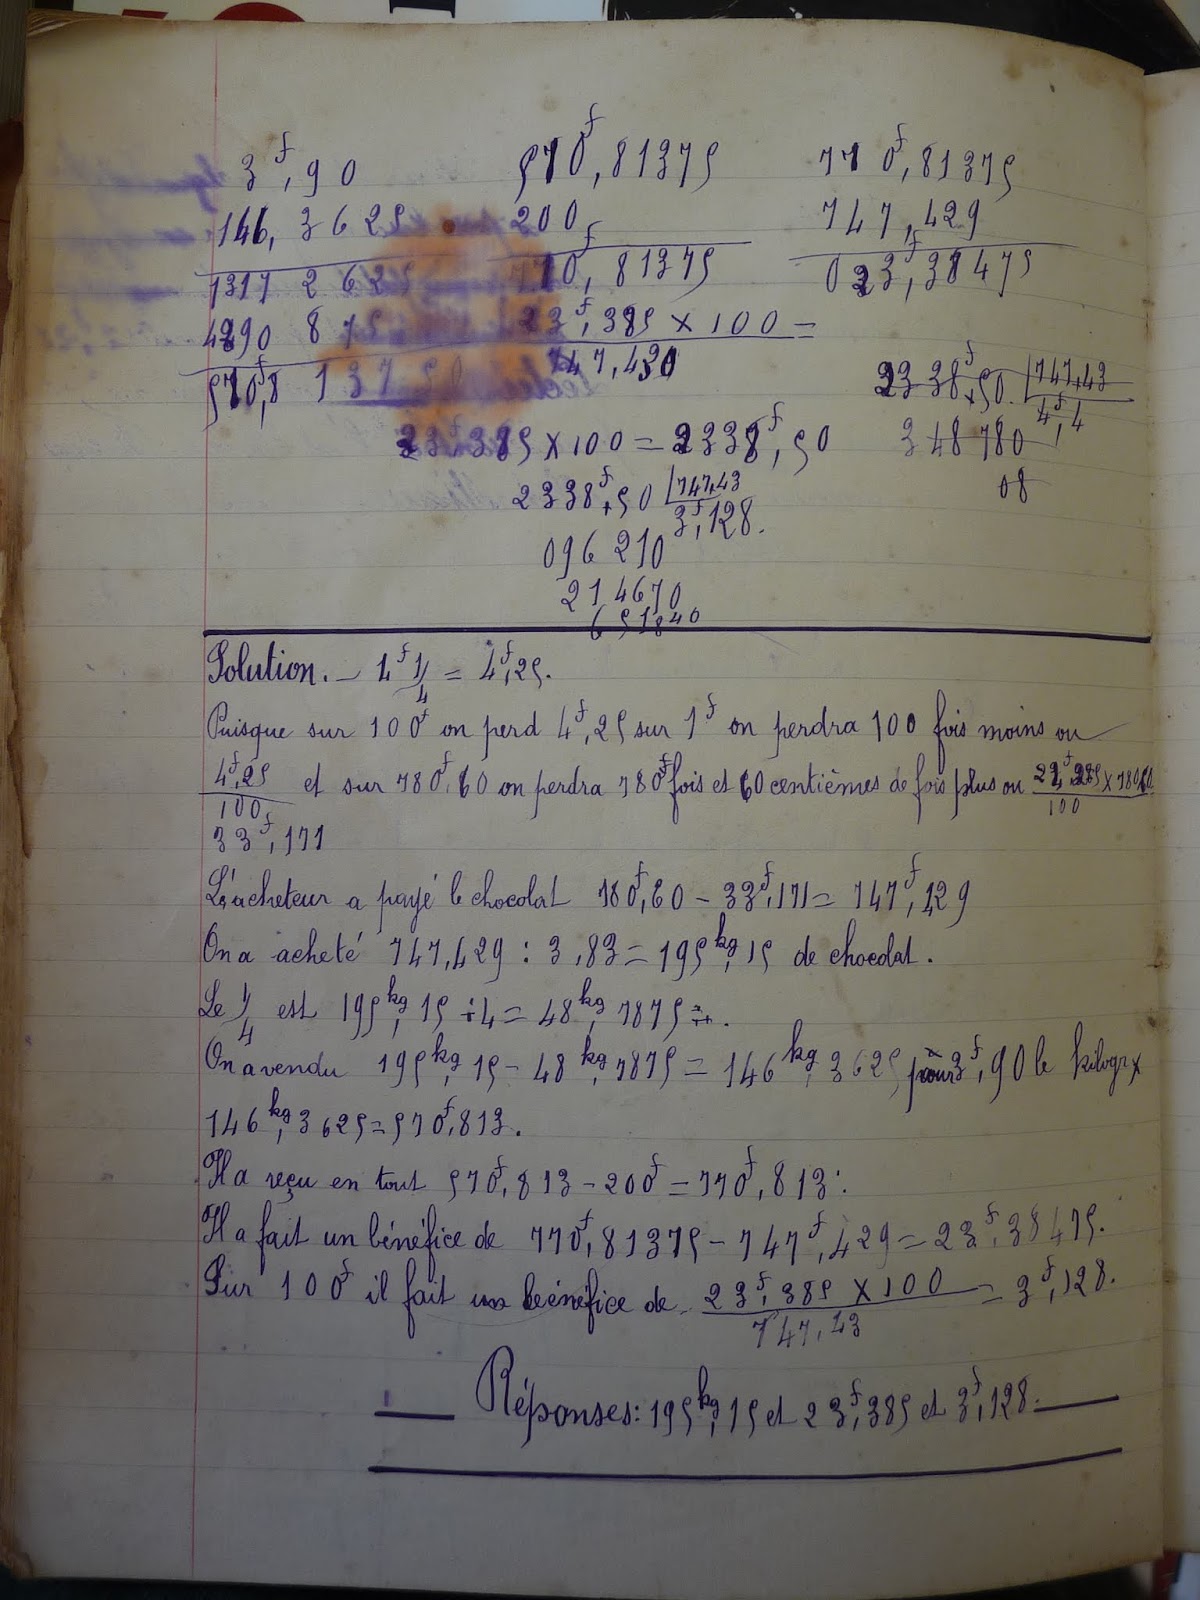 3f,90
146,3625
1317 2625
4390 875
570f,8 137 50
570f,81375
200f
770,81375
23f,385 x 100 =
747,430
770f,81375
747,429
023f,38475
23f385 x 100 = 2338f,50
2338f,50 747,43
3f,128.
096 210
214670
651840
2338f,50. 747,43
4f,4
348780
08
Solution. - 4f 1/4 = 4f,25.
Puisque sur 100f on perd 4f,25 sur 1f on perdra 100 fois moins ou
4f,25/100 et sur 780f,60 on perdra 780f fois et 60 centièmes de fois plus ou x 780,60/100
33f,171
L'acheteur a payé le chocolat 780f,60 - 33f,171 = 747f,429
On a acheté 747,429 : 3,83 = 195kg,15 de chocolat.
Le 1/4 est 195kg,15 ÷ 4 = 48kg,7875
On a vendu 195kg,15 - 48kg,7875 = 146kg,3625 à 3f,90 le kilogr x
146kg,3625 = 570f,813.
Il a reçu en tout 570f,813 - 200f = 770f,813.
Il a fait un bénéfice de 770f,81375 - 747f,429 = 23f,38475.
Sur 100f il fait un bénéfice de 23f,385 x 100/747,43 = 3f,128.
Réponses: 195kg,15 et 23f,385 et 3f,128.